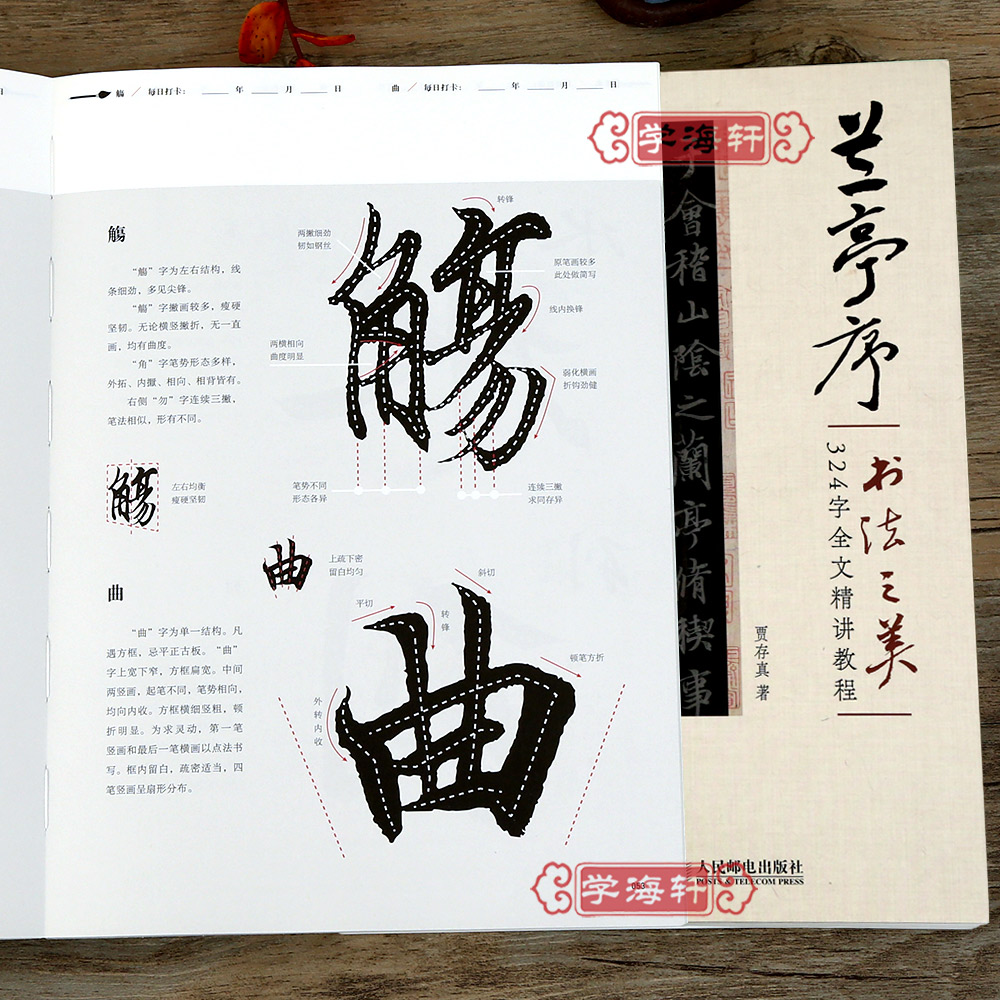 日
觞 / 每日打卡： 年 月 日 曲 / 每日打卡： 年 月 日
觞
“觞”字为左右结构，线
条细劲，多见尖锋。
“觞”字撇画较多，瘦硬
坚韧。无论横竖撇折，无一直
画，均有曲度。
“角”字笔势形态多样，
外拓、内擫、相向、相背皆有。
右侧“勿”字连续三撇，
笔法相似，形有不同。
两撇细劲
韧如钢丝
转锋
原笔画较多
此处做简写
线内换锋
两横相向
曲度明显
弱化横画
折钩劲健
觴
觴
左右均衡
瘦硬坚韧
笔势不同
形态各异
连续三撇
求同存异
曲
上疏下密
留白均匀
曲
“曲”字为单一结构。凡
遇方框，忌平正古板。“曲”
字上宽下窄，方框扁宽。中间
两竖画，起笔不同，笔势相向，
均向内收。方框横细竖粗，顿
折明显。为求灵动，第一笔
竖画和最后一笔横画以点法书
写。框内留白，疏密适当，四
笔竖画呈扇形分布。
平切
转锋
斜切
顿笔方折
外转内收
曲
053
学海轩
于會稽山陰之蘭亭脩禊事
兰亭序
书法之美
324字全文精讲教程
贾存真 著
人民邮电出版社
POSTS & TELECOM PRESS
学海轩